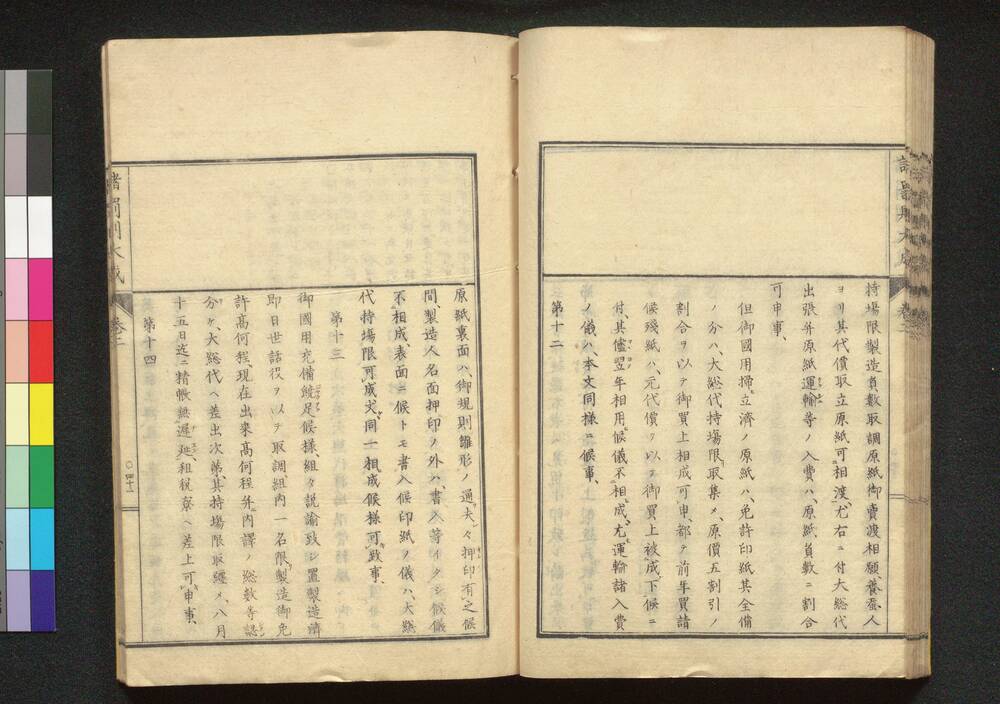 持場限製造員數取調原紙御賣渡相願養蚕人
ヨリ其代價取立原紙可相渡尤右ニ付大総代
出張幷原紙運輸等ノ入費ハ、原紙員數ニ割合
可申事、
但御國用掃立濟ノ原紙ハ、免許印紙其全備
ノ分ハ、大総代持場限取集メ、原價五割引ノ
割合ヲ以テ御買上相成可申、都テ前年買請
候殘紙ハ、元代價ヲ以テ御買上被成下候ニ
付、其儘翌年相用候儀不相成、尤運輸諸入費
ノ儀ハ、本文同様ニ候事、
第十二
原紙裏面ハ、御規則雛形ノ通夫々押印有之候
間、製造人名面押印ノ外ハ、書入等イタシ候儀
不相成、表面ニ候トモ書入候印紙ノ儀ハ、大総
代持場限可成丈同一相成候様可致事、
第十三
御國用充備饒足候様組々説諭致シ置製造濟
即日世話役ヲ以テ取調組內一名限製造御免
許高何程、現在出來高何程幷內譯ノ総數等認
分ケ、大総代ヘ差出次第、其持場限取纒メ、八月
十五日迄ニ精帳無遲延租稅寮ヘ差上可申事、
第十四
諸罰則大成
卷二
〇四十二